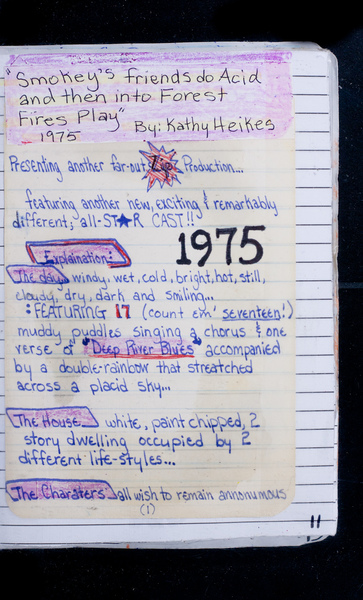 "Smokey's friends do Acid
and then into Forest
Fires Play"
1975 By: Kathy Heikes
Presenting another far-out Zip Production...
featuring another new, exciting & remarkably
different; all-ST★R CAST!!
1975
Explaination:
The day windy, wet, cold, bright, hot, still,
cloudy, dry, dark and smiling...
: FEATURING 17 (count em' seventeen!)
muddy puddles singing a chorus & one
verse of "Deep River Blues" accompanied
by a double-rainbow that streatched
across a placid sky...
The House white, paint chipped, 2
story dwelling occupied by 2
different life-styles...
The Charaters all wish to remain annonumous
(1)
11